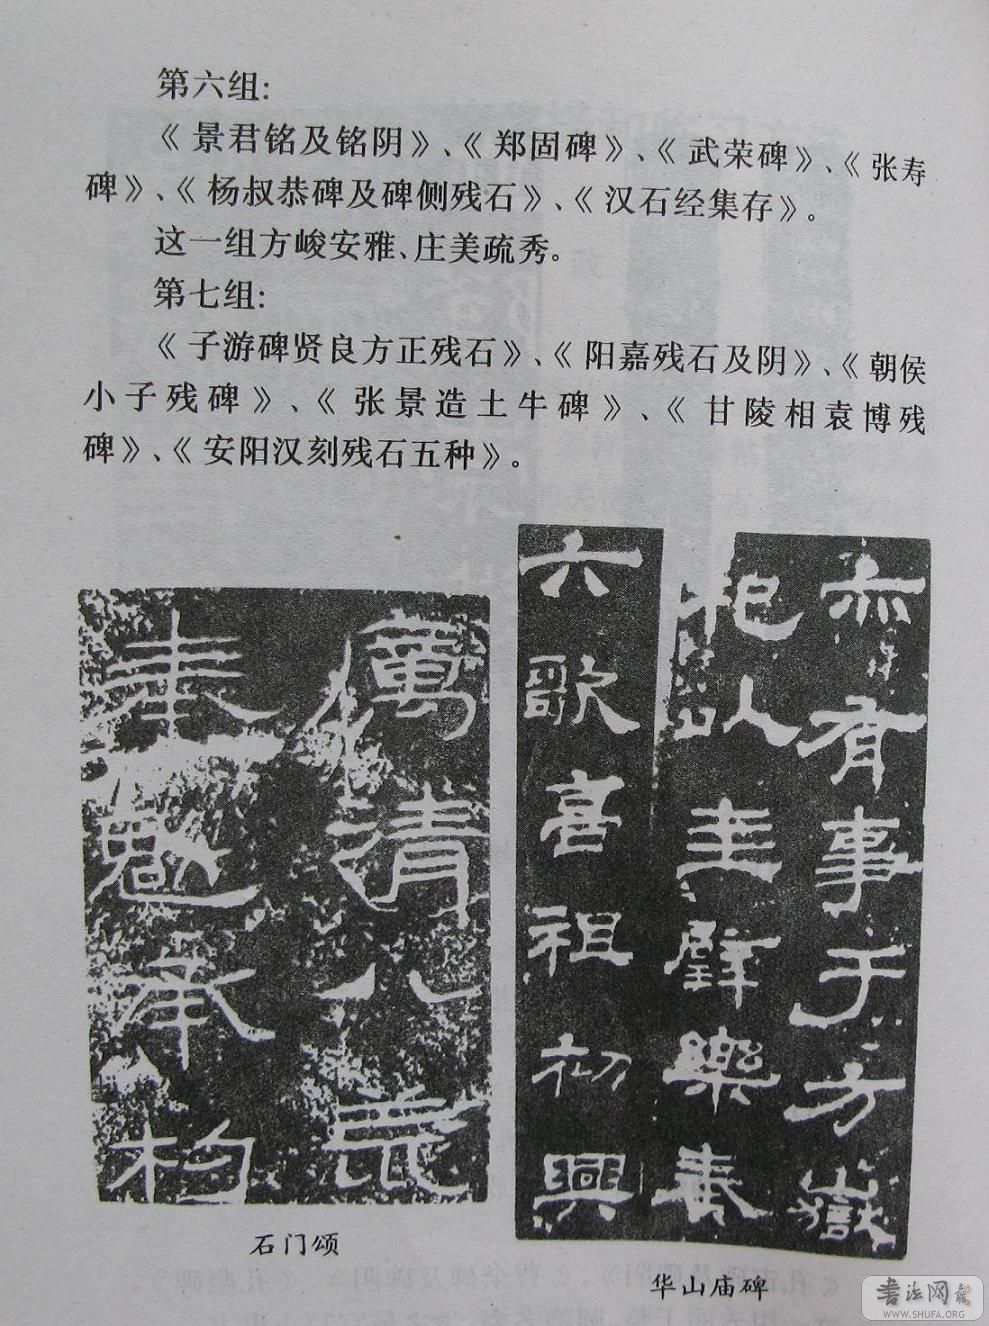 第六组:
《景君铭及铭阴》、《郑固碑》、《武荣碑》、《张寿
碑》、《杨叔恭碑及碑侧残石》、《汉石经集存》。
这一组方峻安雅、庄美疏秀。
第七组:
《子游碑贤良方正残石》、《阳嘉残石及阴》、《朝侯
小子残碑》、《张景造土牛碑》、《甘陵相袁博残
碑》、《安阳汉刻残石五种》。
清八
奉魁承杓
石门颂
亦有事于方嶽
祀以圭璧樂奏
六歌高祖初興
华山庙碑
书法网
WWW.SHUFA.ORG